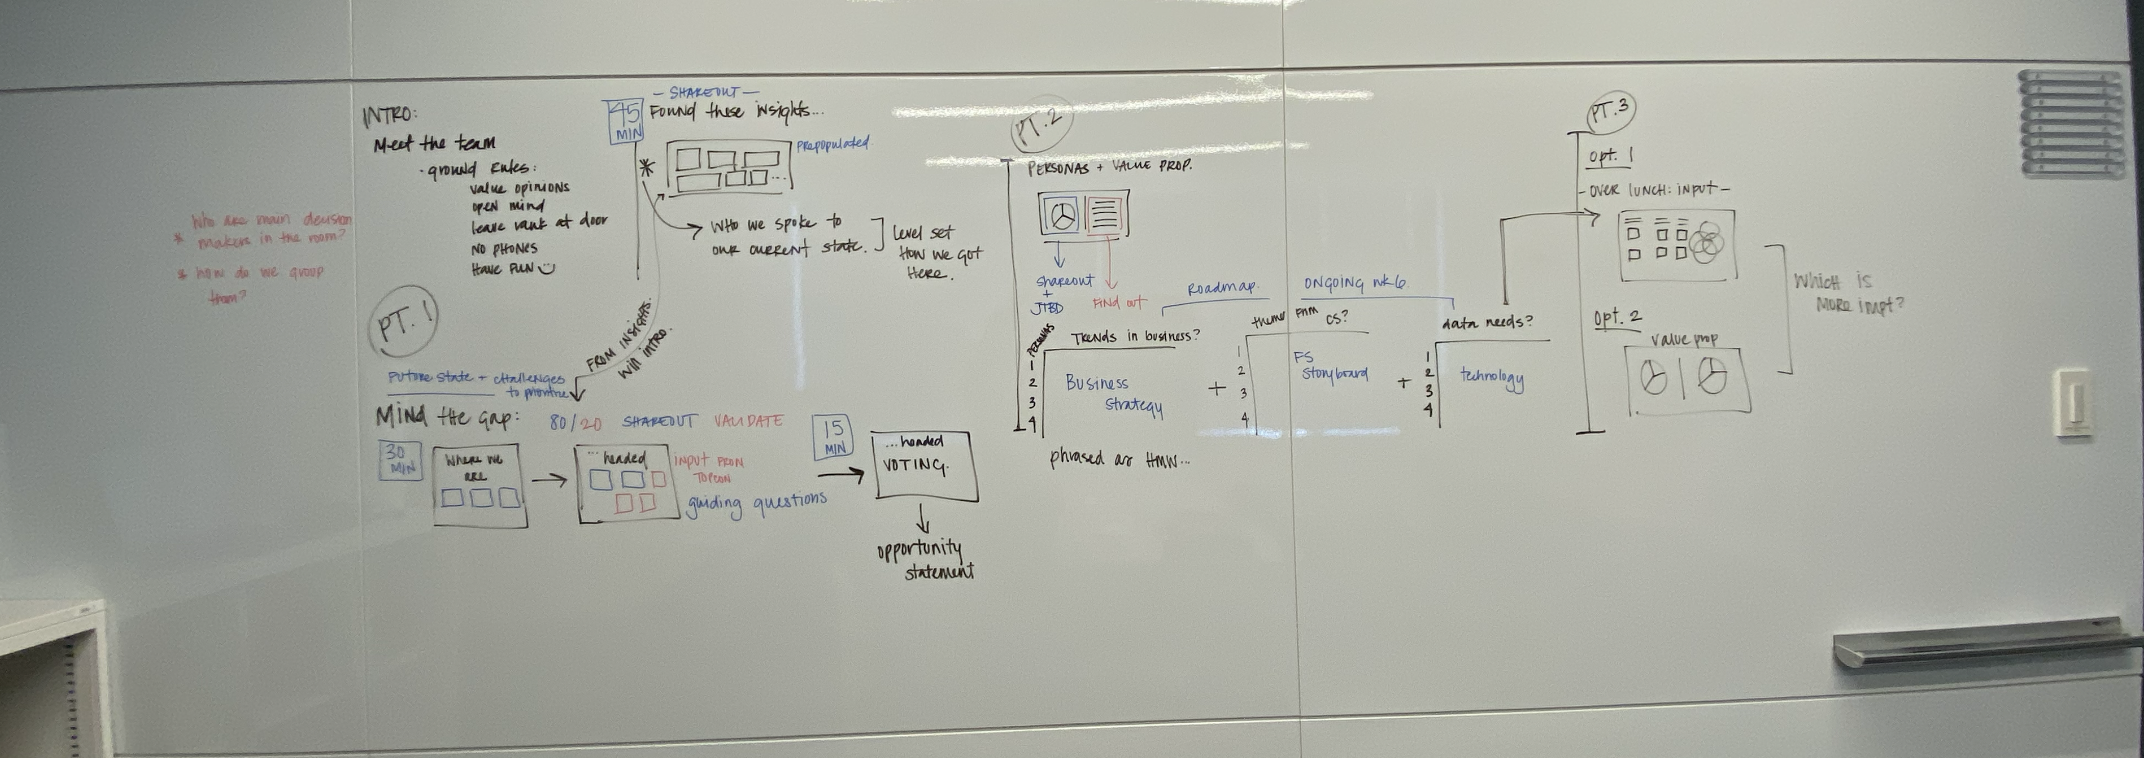 Who are main decision
* makers in the room?
* how do we group
them?
INTRO:
Meet the team
· ground rules:
value opinions
open mind
leave rank at door
NO PHONES
Have FUN
45
MIN
- SHAREOUT -
Found these insights...
Prepopulated
*
Who we spoke to
our current state.
level set
How we got
Here.
FROM INSIGHTS.
Will intro.
PT. 1
Future state + challenges
to prioritize
Mind the gap:
80/20 SHAREOUT VALIDATE
30
MIN
Where we
are
... headed
INPUT FROM
TOPCON
guiding questions
15
MIN
... headed
VOTING.
opportunity
statement
PT. 2
PERSONAS + VALUE PROP.
shareout
+
JTBD
FIND OUT
Roadmap.
ONGOING wk6
PERSONAS
1
2
3
4
Trends in business?
Business
Strategy
+
theme from CS?
1
2
3
4
FS
Storyboard
+
data needs?
1
2
3
4
technology
phrased as HMW...
PT. 3
opt. 1
- OVER LUNCH: INPUT -
opt. 2
value prop
Which is
more impt?